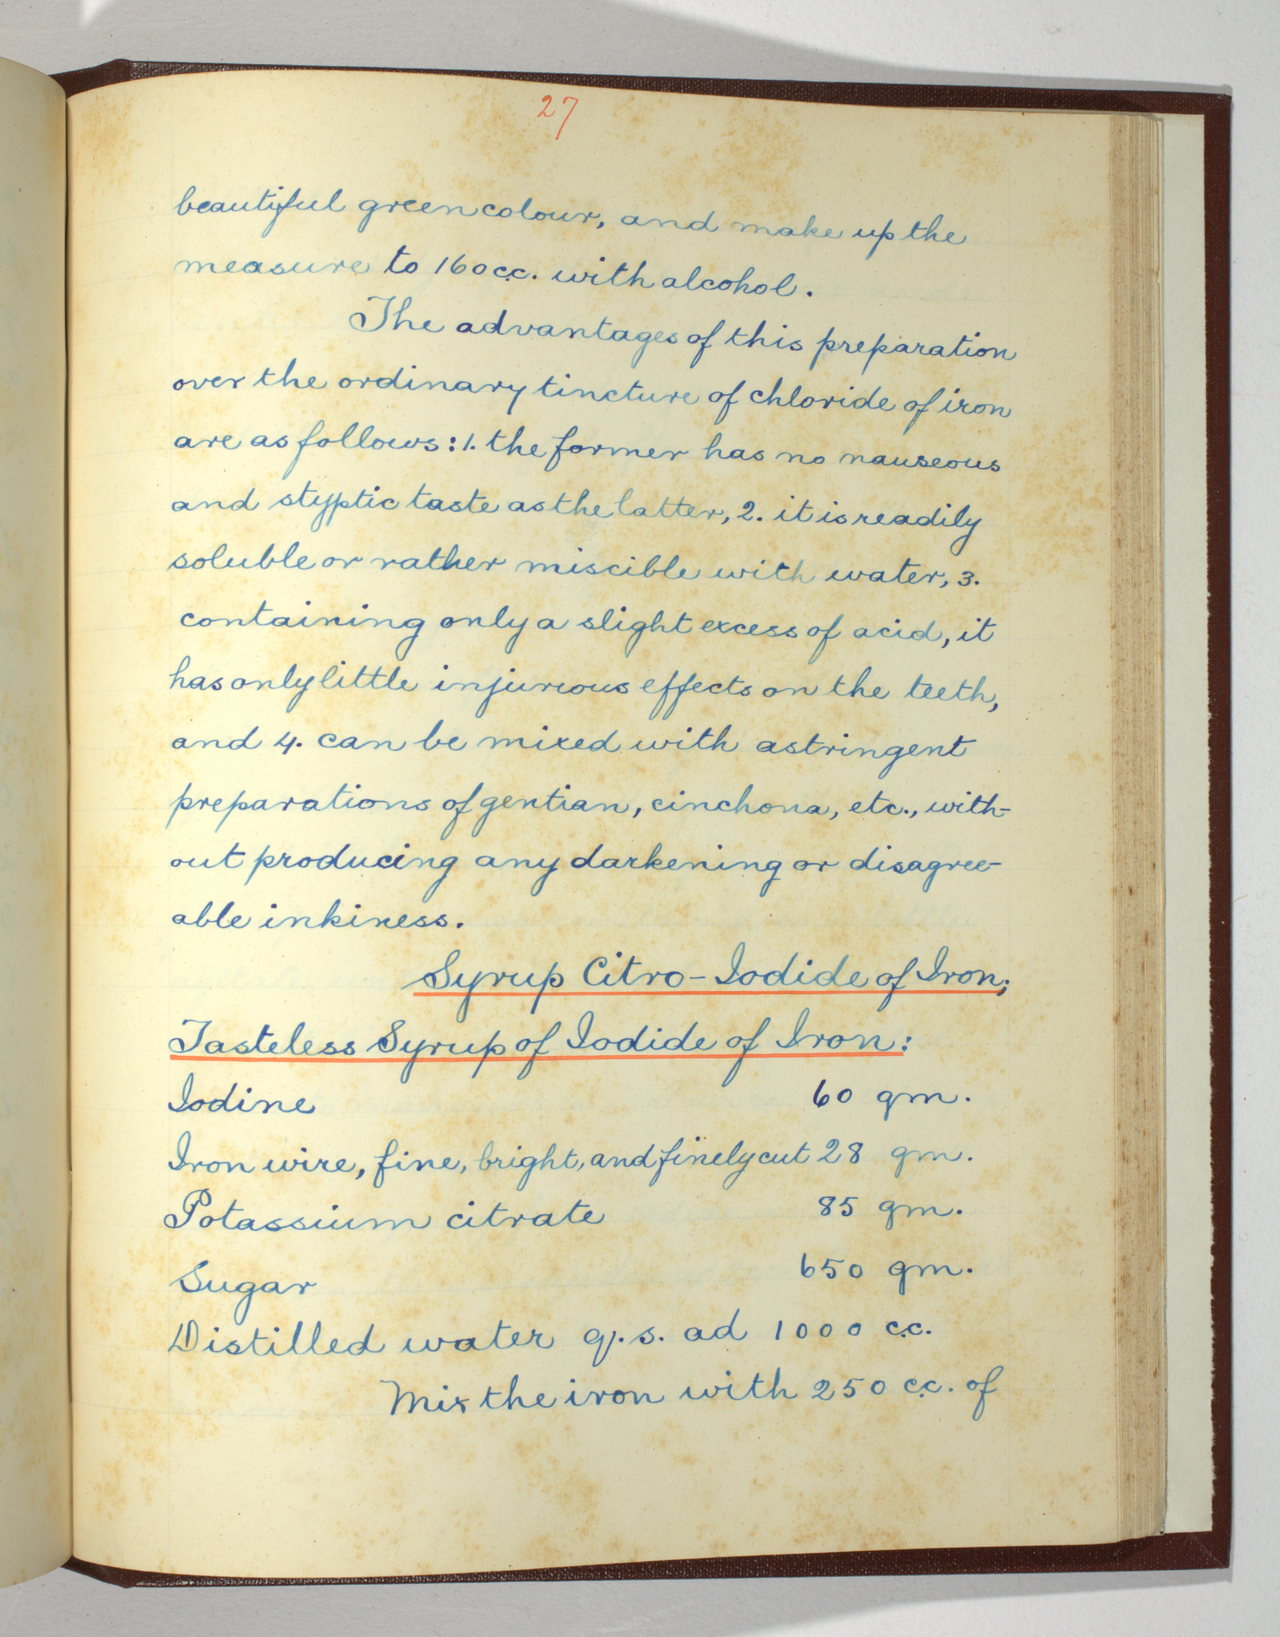 27
beautiful green colour, and make up the
measure to 160 c.c. with alcohol.
The advantages of this preparation
over the ordinary tincture of chloride of iron
are as follows: 1. the former has no nauseous
and styptic taste as the latter, 2. it is readily
soluble or rather miscible with water, 3.
containing only a slight excess of acid, it
has only little injurious effects on the teeth,
and 4. can be mixed with astringent
preparations of gentian, cinchona, etc., with-
out producing any darkening or disagree-
able inkiness.
Syrup Citro-Iodide of Iron;
Tasteless Syrup of Iodide of Iron:
Iodine 60 gm.
Iron wire, fine, bright, and finely cut 28 gm.
Potassium citrate 85 gm.
Sugar 650 gm.
Distilled water q.s. ad 1000 c.c.
Mix the iron with 250 c.c. of